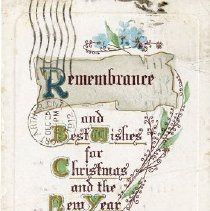 Remembrance
and
Best Wishes
for
Christmas
and the
New Year
DEC
PM